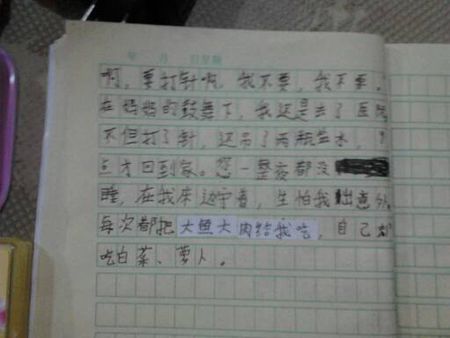 年 月 日 星期
啊，要打针啊，我不要，我不要，
在妈妈的鼓舞下，我还是去了医院
不但打了针，还吊了两瓶盐水，
点才回到家。您一整夜都没
睡，在我床边守着，生怕我出意外
每次都把大鱼大肉给我吃，自己却
吃白菜、萝卜。